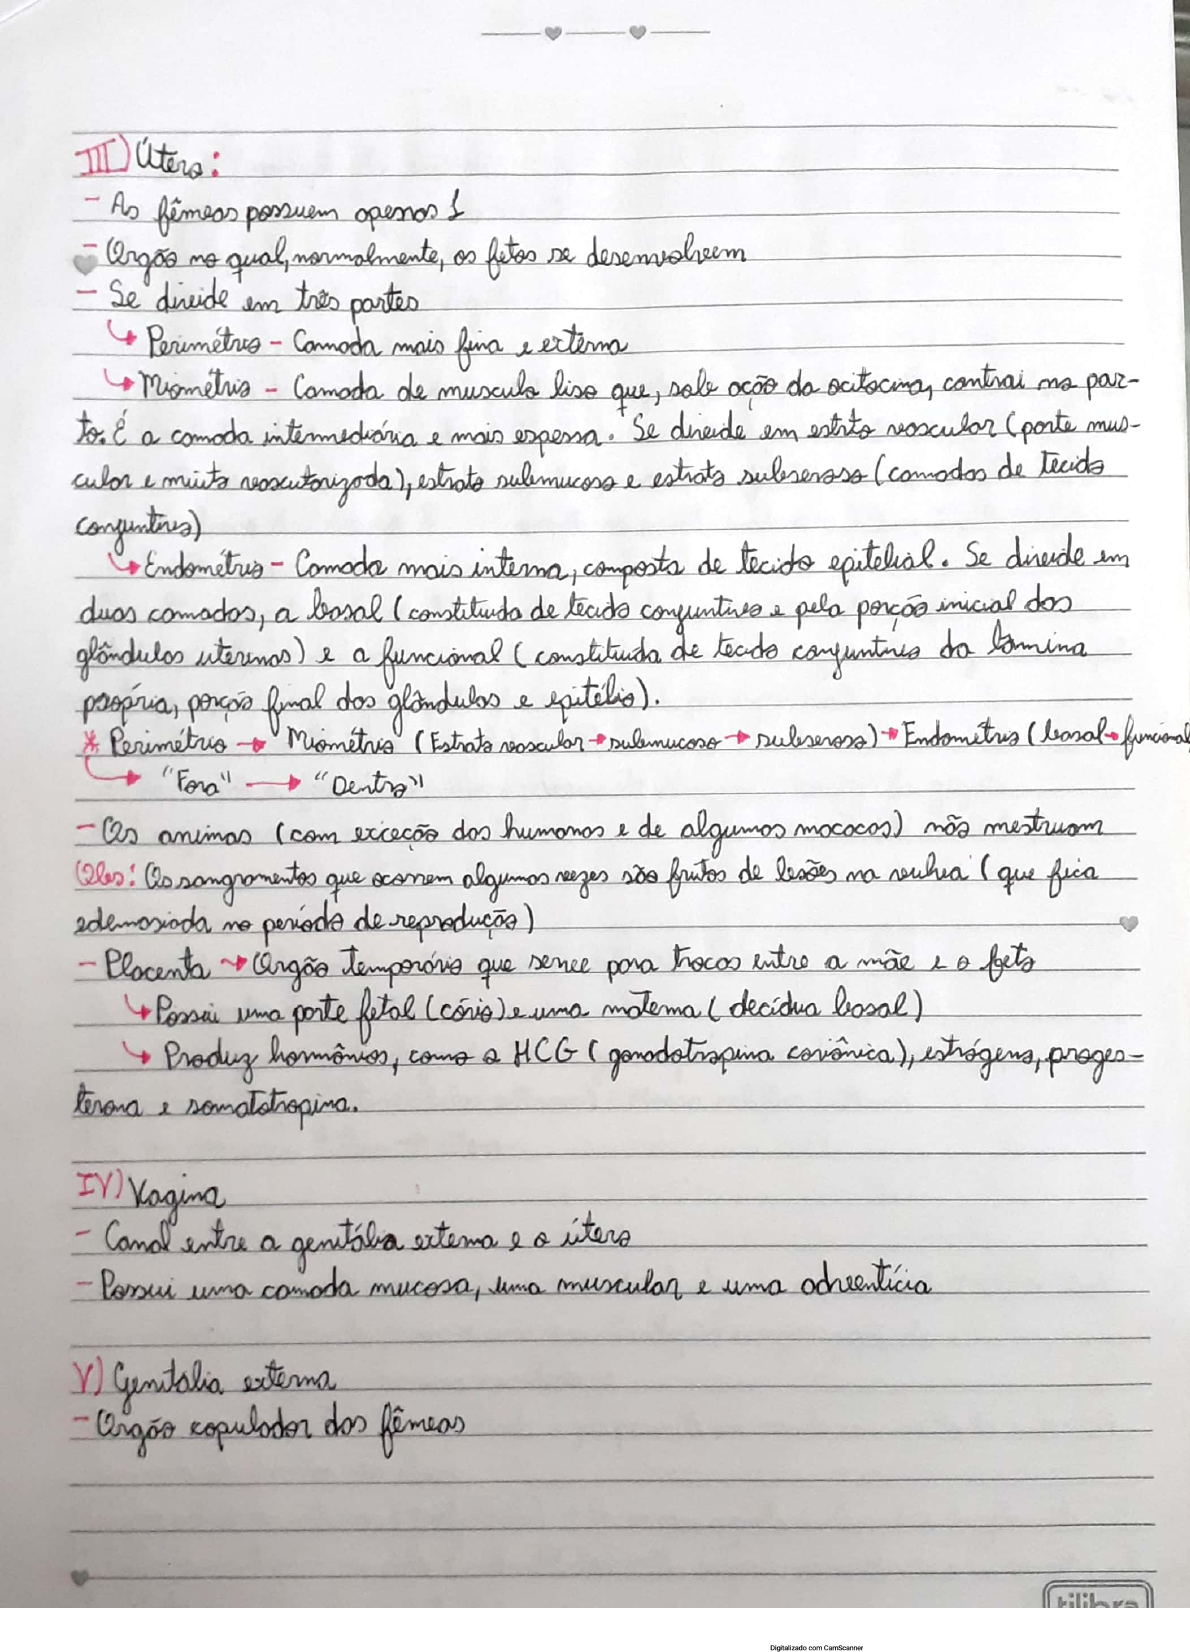 III) Útero:
- As fêmeas possuem apenas 1
- Orgão no qual, normalmente, os fetos se desenvolvem
- Se divide em três partes
↳ Perimétrio - Camada mais fina e externa
↳ Miométrio - Camada de musculo liso que, sob ação da ocitocina, contrai no par-
to. É a camada intermediária e mais espessa. Se divide em estrto vascular (parte mus-
cular e muito vascutorizada), estrato submucoso e estrato subseroso (camadas de tecido
conjuntivo)
↳ Endométrio - Camada mais interna, composta de tecido epitelial. Se divide em
duas camadas, a basal (constituida de tecido conjuntivo e pela porção inicial das
glândulas uterinas) e a funcional (constituida de tecido conjuntivo da lâmina
própria, porção final das glândulas e epitélio).
* Perimétrio → Miométrio (Estrato vascular → submucoso → subseroso) → Endométrio (basal → funcional
↳ "Fora" → "Dentro"
- Os animas (com exceção dos humanos e de algumas macacos) não mestruam
Obs: Os sangramentos que ocorrem algumas vezes são frutos de lesões na vulva (que fica
edemasiada no período de reprodução)
- Placenta → Orgão temporário que serve para trocas entre a mãe e o feto
↳ Possui uma parte fetal (cório) e uma materna (decídua basal)
↳ Produz hormônios, como a HCG (gonodotropina coriônica), estrógeno, proges-
terona e somatotropina.
IV) Vagina
- Canal entre a genitália externa e o útero
- Possui uma camada mucosa, uma muscular e uma adventícia
V) Genitalia externa
- Orgão copulador das fêmeas
tilibra
Digitalizado com CamScanner